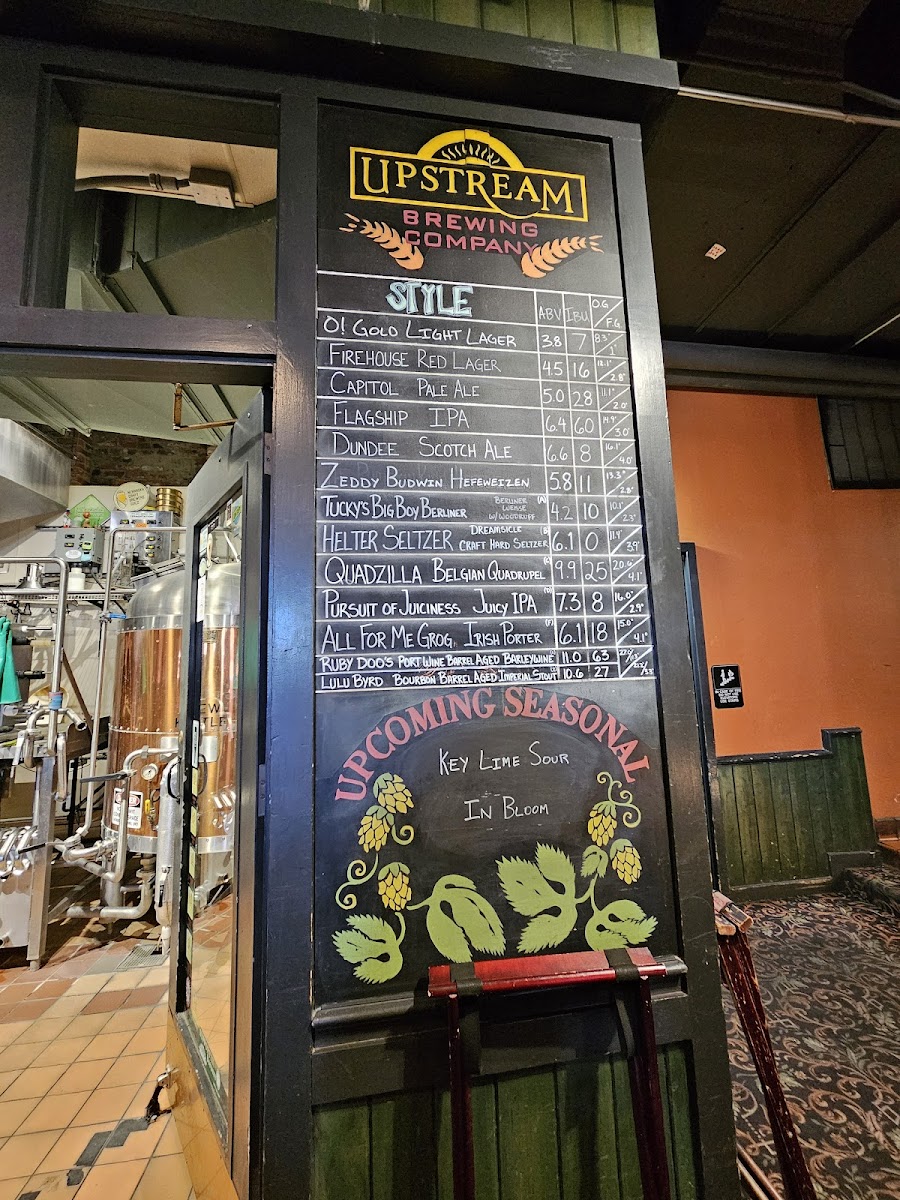 UPSTREAM
BREWING
COMPANY
STYLE ABV IBU O.G / F.G.
O! GOLD LIGHT LAGER 3.8 7
FIREHOUSE RED LAGER 4.5 16 12.1° / 2.8°
CAPITOL PALE ALE 5.0 28 11.1° / 2.0°
FLAGSHIP IPA 6.4 60 14.9° / 3.0°
DUNDEE SCOTCH ALE 6.6 8 16.1° / 4.0°
ZEDDY BUDWIN HEFEWEIZEN 5.8 11 13.3° / 2.8°
TUCKY'S BIG BOY BERLINER BERLINER WEISSE W/ WOODRUFF (A) 4.2 10 10.1° / 2.3°
HELTER SELTZER DREAMSICLE CRAFT HARD SELTZER 6.1 0 11.4° / 3.9°
QUADZILLA BELGIAN QUADRUPEL 9.9 25 20.6° / 4.1°
PURSUIT OF JUICINESS JUICY IPA 7.3 8 16.0° / 2.9°
ALL FOR ME GROG, IRISH PORTER (F) 6.1 18 15.0° / 4.1°
RUBY DOO'S PORT WINE BARREL AGED BARLEYWINE 11.0 63
LULU BYRD BOURBON BARREL AGED IMPERIAL STOUT 10.6 27
UPCOMING SEASONAL
KEY LIME SOUR
IN BLOOM